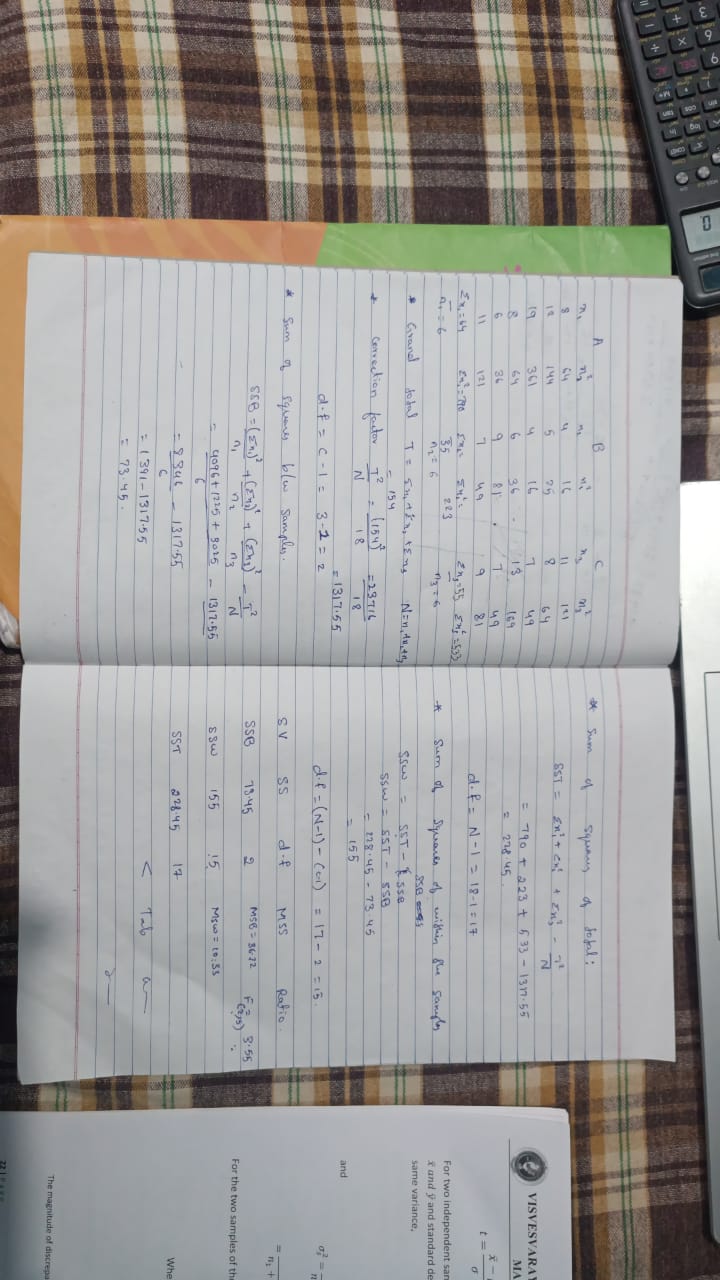 A B C
x₁ x₁² x₂ x₂² x₃ x₃²
8 64 4 16 11 121
12 144 5 25 8 64
19 361 4 16 7 49
8 64 6 36 13 169
6 36 9 81 7 49
11 121 7 49 9 81
Σx₁=64 Σx₁²=790 Σx₂= Σx₂²= Σx₃=55 Σx₃²=533
n₁=6 35 223
n₂=6 n₃=6
* Grand total T = Σx₁+Σx₂+Σx₃ N=n₁+n₂+n₃
= 154
* Correction factor T²/N = (154)²/18 = 23716/18
= 1317.55
d.f = C-1 = 3-1 = 2
* Sum of squares b/w samples.
SSB = (Σx₁)²/n₁ + (Σx₂)²/n₂ + (Σx₃)²/n₃ - T²/N
= 4096+1225+3025/6 - 1317.55
= 8346/6 - 1317.55
= 1391-1317.55
= 73.45.
* Sum of squares of total:
SST = Σx₁²+Σx₂² + Σx₃² - T²/N
= 790 + 223 + 533 - 1317.55
= 228.45.
d.f = N-1 = 18-1=17
* Sum of squares of within the samples
SSB
SSW = SST - SSB
SSW = SST - SSB
= 228.45 - 73.45
= 155
d.f = (N-1) - (C-1) = 17-2 = 15.
SV SS d.f MSS Ratio.
SSB 73.45 2 MSB = 36.72 F(2,15) = 3.55
SSW 155 15 MSW = 10.33
SST 228.45 17
< Tab
VISVESVARAY
MA
t = x̄ -
σ
For two independent sam
x̄ and ȳ and standard de
same variance,
and
σₛ² =
n₁ +
For the two samples of the
Whe
The magnitude of discrepa
22 |